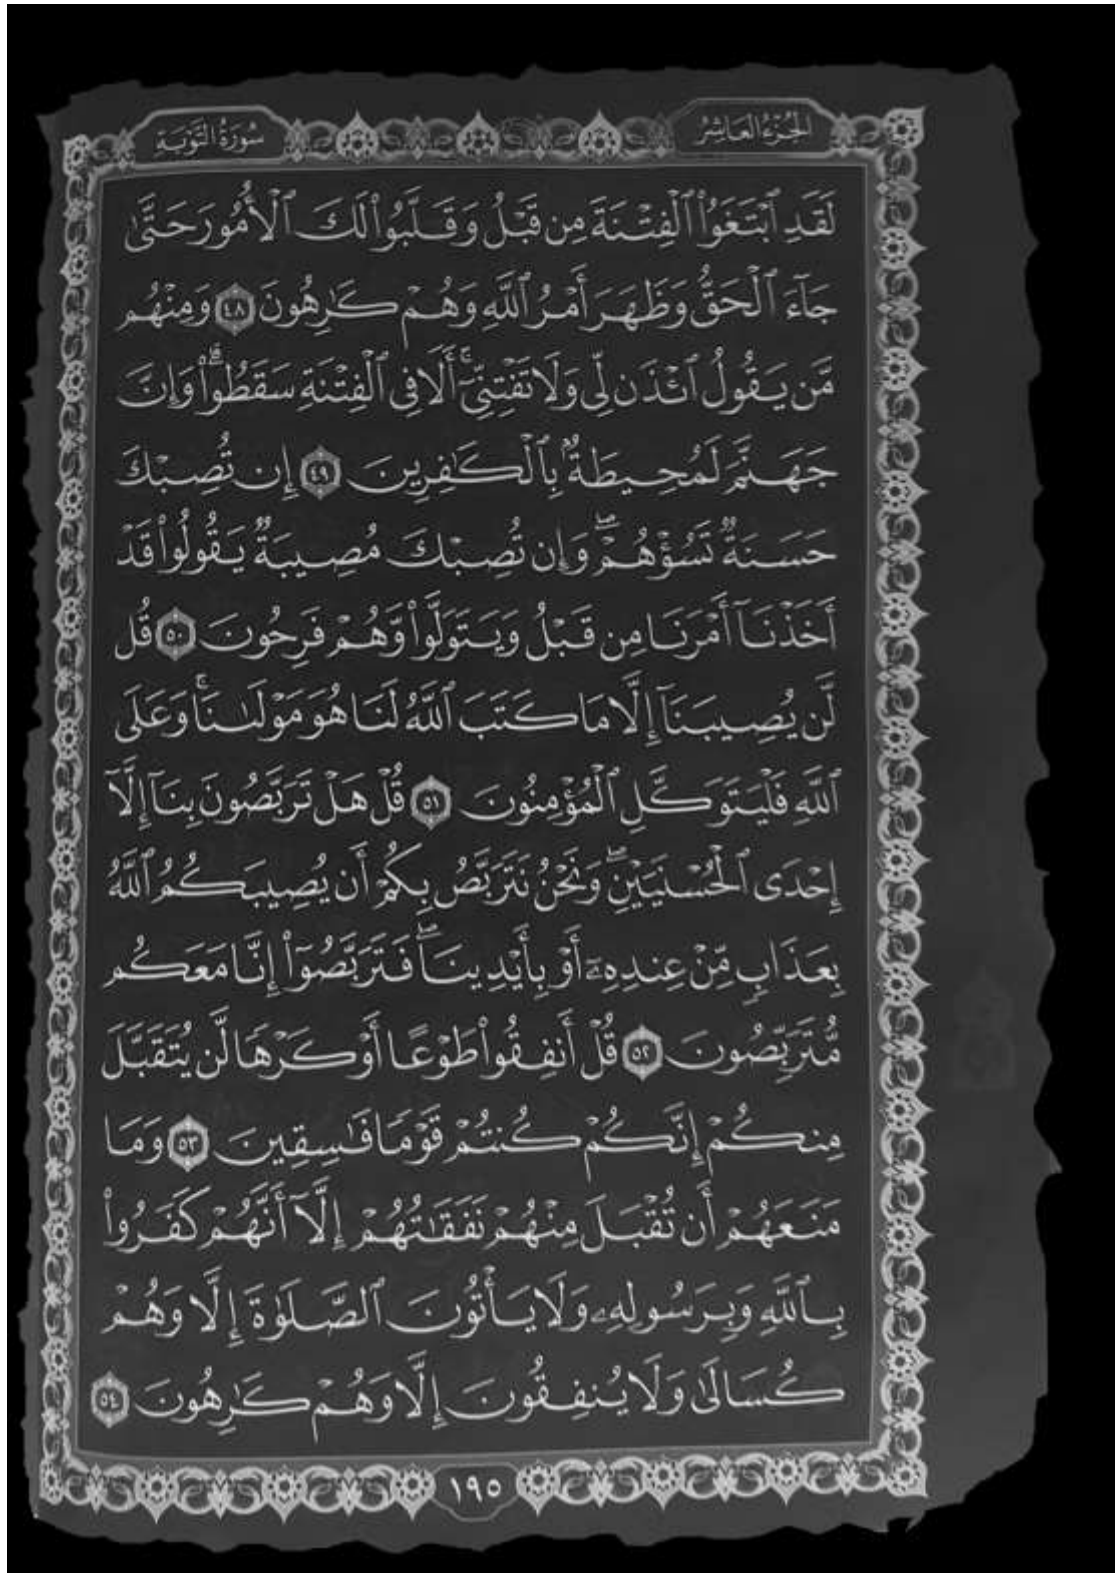 الجزء العاشر
سورة التوبة
لَقَدِ ٱبْتَغَوُا۟ ٱلْفِتْنَةَ مِن قَبْلُ وَقَلَّبُوا۟ لَكَ ٱلْأُمُورَ حَتَّىٰ
جَآءَ ٱلْحَقُّ وَظَهَرَ أَمْرُ ٱللَّهِ وَهُمْ كَـٰرِهُونَ ٤٨ وَمِنْهُم
مَّن يَقُولُ ٱئْذَن لِّى وَلَا تَفْتِنِّىٓ ۚ أَلَا فِى ٱلْفِتْنَةِ سَقَطُوا۟ ۗ وَإِنَّ
جَهَنَّمَ لَمُحِيطَةٌۢ بِٱلْكَـٰفِرِينَ ٤٩ إِن تُصِبْكَ
حَسَنَةٌ تَسُؤْهُمْ ۖ وَإِن تُصِبْكَ مُصِيبَةٌ يَقُولُوا۟ قَدْ
أَخَذْنَآ أَمْرَنَا مِن قَبْلُ وَيَتَوَلَّوا۟ وَّهُمْ فَرِحُونَ ٥٠ قُل
لَّن يُصِيبَنَآ إِلَّا مَا كَتَبَ ٱللَّهُ لَنَا هُوَ مَوْلَىٰنَا ۚ وَعَلَى
ٱللَّهِ فَلْيَتَوَكَّلِ ٱلْمُؤْمِنُونَ ٥١ قُلْ هَلْ تَرَبَّصُونَ بِنَآ إِلَّآ
إِحْدَى ٱلْحُسْنَيَيْنِ ۖ وَنَحْنُ نَتَرَبَّصُ بِكُمْ أَن يُصِيبَكُمُ ٱللَّهُ
بِعَذَابٍ مِّنْ عِندِهِۦٓ أَوْ بِأَيْدِينَا ۖ فَتَرَبَّصُوٓا۟ إِنَّا مَعَكُم
مُّتَرَبِّصُونَ ٥٢ قُلْ أَنفِقُوا۟ طَوْعًا أَوْ كَرْهًا لَّن يُتَقَبَّلَ
مِنكُمْ إِنَّكُمْ كُنتُمْ قَوْمًا فَـٰسِقِينَ ٥٣ وَمَا
مَنَعَهُمْ أَن تُقْبَلَ مِنْهُمْ نَفَقَـٰتُهُمْ إِلَّآ أَنَّهُمْ كَفَرُوا۟
بِٱللَّهِ وَبِرَسُولِهِۦ وَلَا يَأْتُونَ ٱلصَّلَوٰةَ إِلَّا وَهُمْ
كُسَالَىٰ وَلَا يُنفِقُونَ إِلَّا وَهُمْ كَـٰرِهُونَ ٥٤
١٩٥